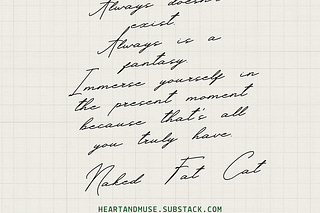 Always doesn't
exist.
Always is a
fantasy.
Immerse yourself in
the present moment
because that's all
you truly have.
Naked Fat Cat
HEARTANDMUSE.SUBSTACK.COM